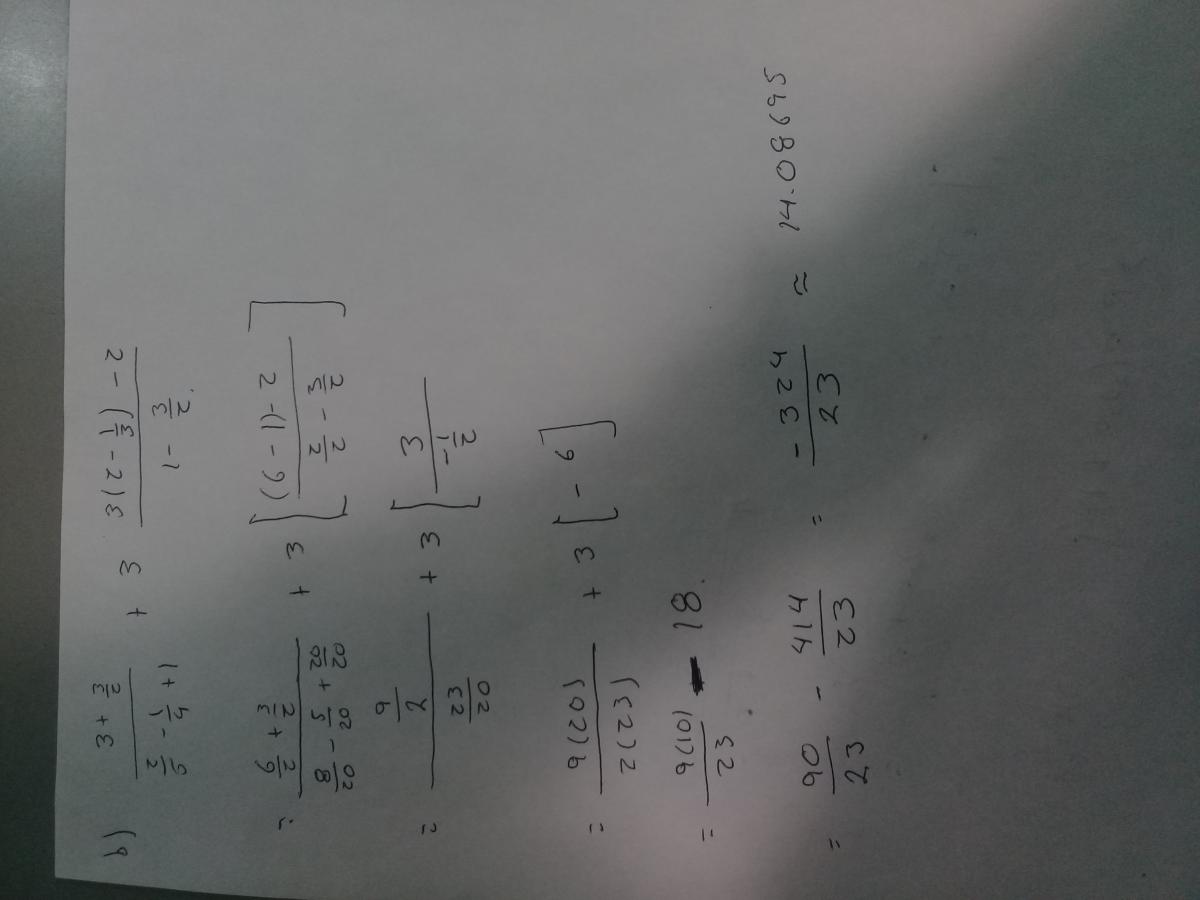 9) (3 + 3/2) / (2/5 - 1/4 + 1) + 3 (3(2 - 1/3) - 2) / (1 - 3/2).
= (6/2 + 3/2) / (8/20 - 5/20 + 20/20) + 3 [((6 - 1) - 2) / (2/2 - 3/2)]
= (9/2) / (23/20) + 3 [3 / (-1/2)]
= 9(20) / 2(23) + 3 [-6]
= 9(10) / 23 - 18.
= 90/23 - 414/23 = -324/23 ≈ 14.08695